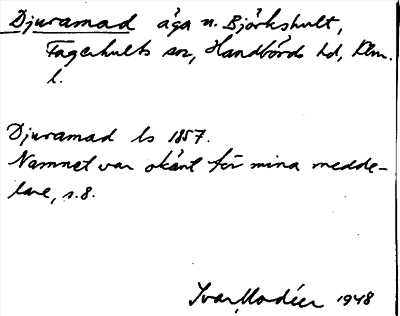 Djuramad äga n. Björkshult,
Fagerhults sn, Handbörds hd, Klm.
l.
Djuramad ls 1857.
Namnet var okänt för mina medde-
lare, s. 8.
Ivar Modéer 1948